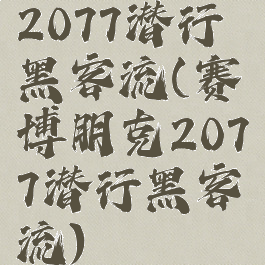 2077潜行
黑客流(赛
博朋克207
7潜行黑客
流)